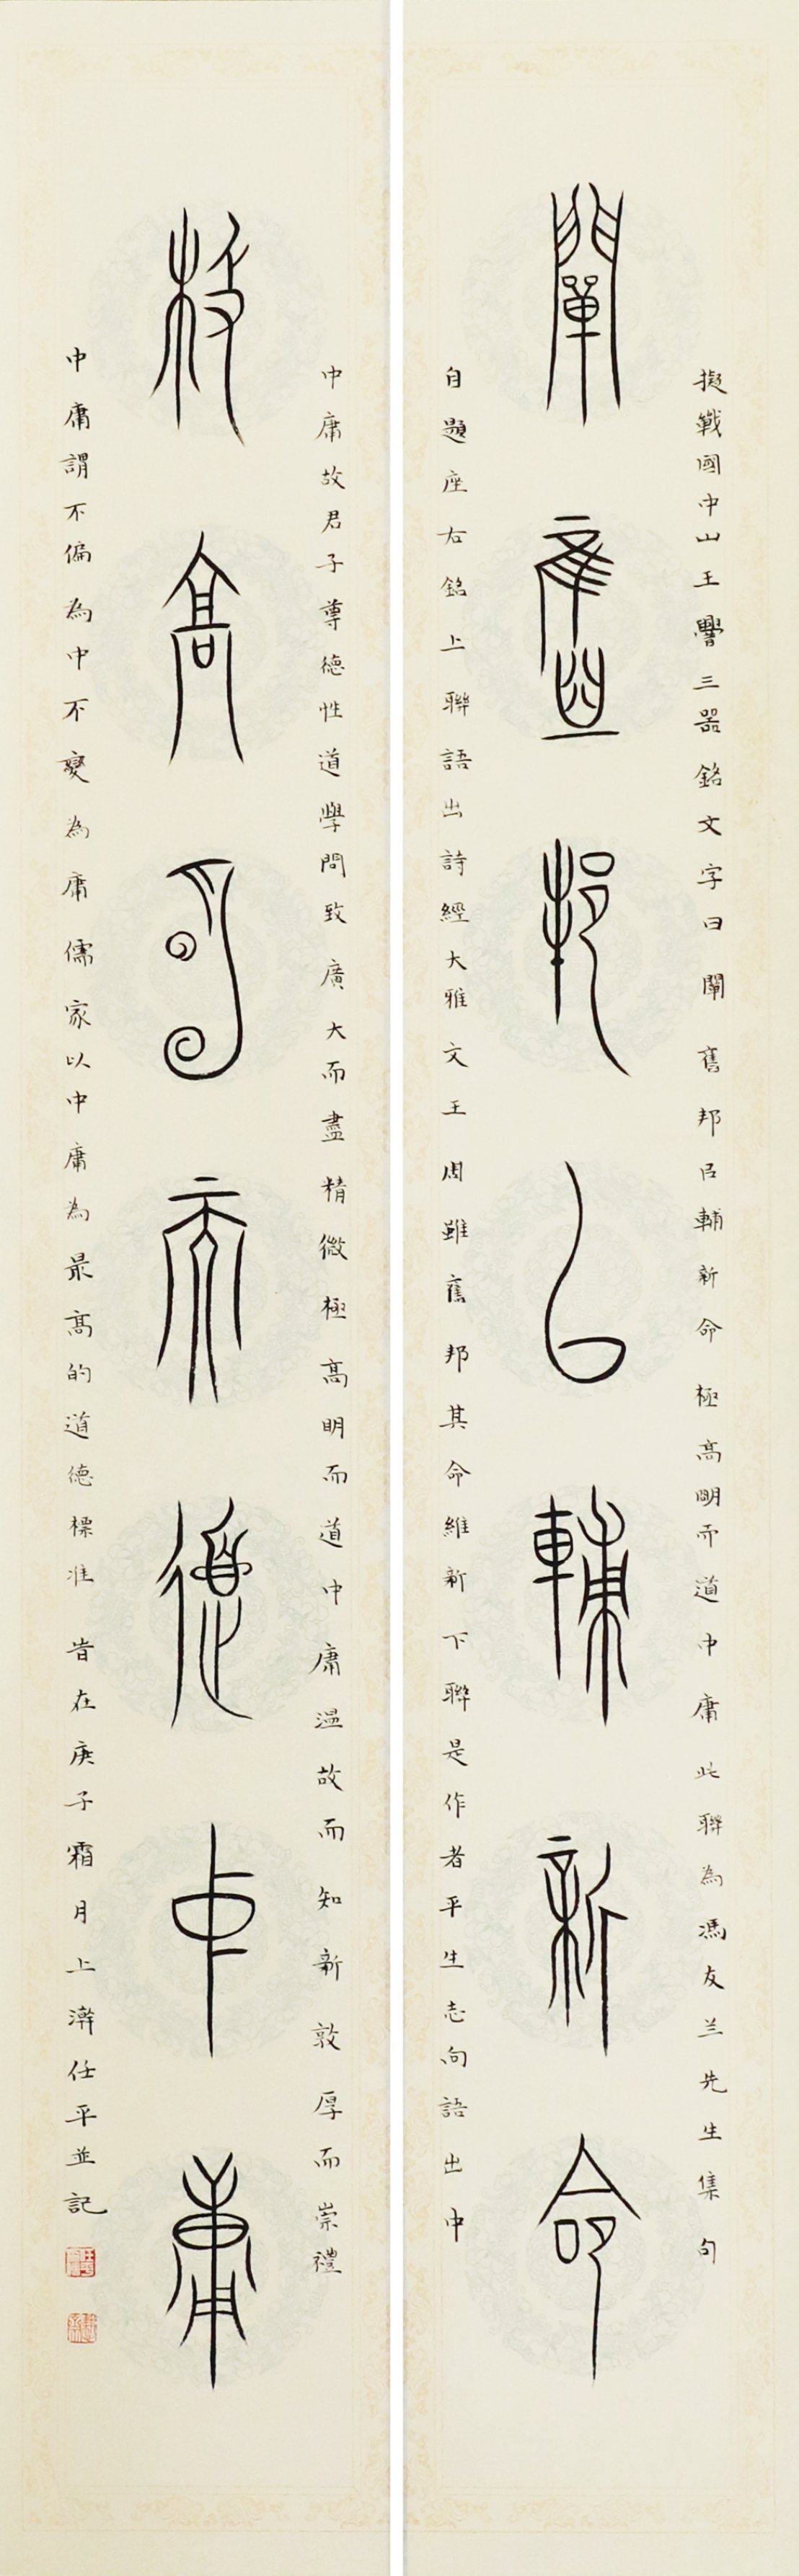 擬戰國中山王𰯼三器銘文字曰 闡舊邦㠯輔新命 極高明而道中庸 此聯為馮友兰先生集句
闡舊邦㠯輔新命
自題座右銘上聯語出詩經大雅文王周雖舊邦其命維新下聯是作者平生志向語出中
中庸故君子尊德性道學問致廣大而盡精微極高明而道中庸溫故而知新敦厚而崇禮
極高明而道中庸
中庸謂不偏為中不變為庸儒家以中庸為最高的道德標准 旹在庚子霜月上澣任平並記